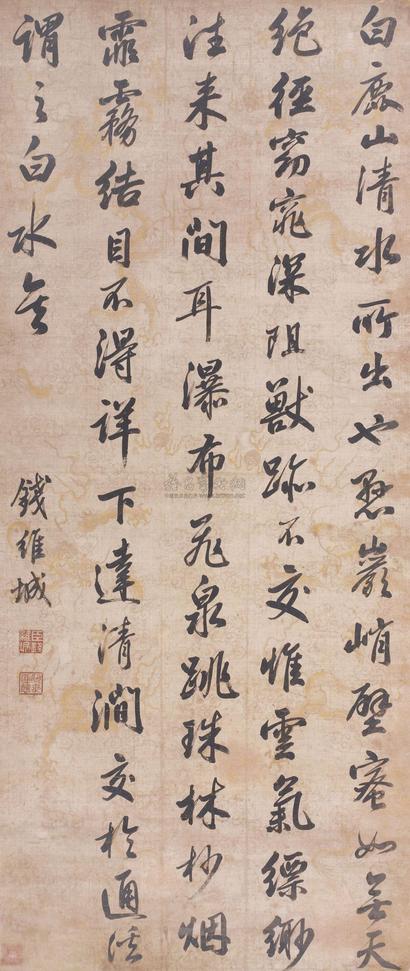 白鹿山清水所出也懸巖峭壁密如無天
絶徑窈窕深阻獸跡不交惟雲氣縹緲
往来其間耳瀑布飛泉跳珠林杪烟
霏霧結目不得詳下達清澗交於通溪
謂之白水矣
錢維城